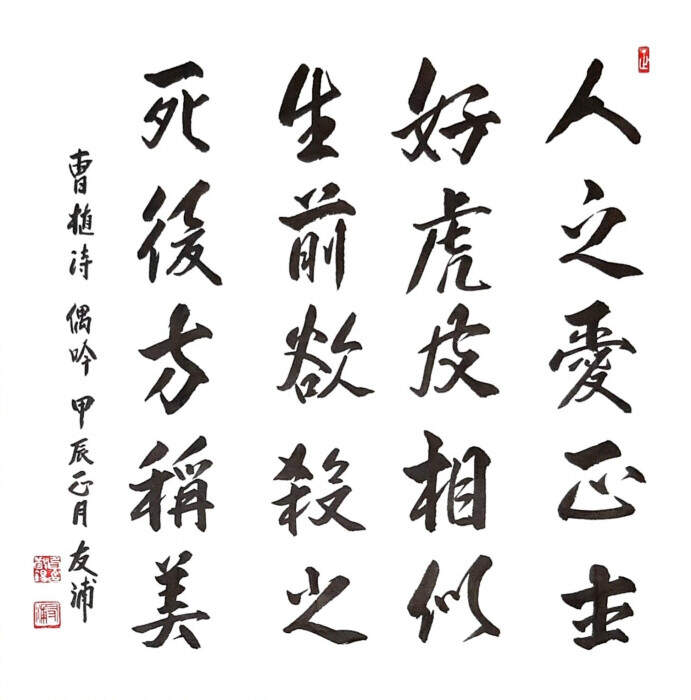 人之愛正士
好虎皮相似
生前欲殺之
死後方稱美
曹植詩 偶吟 甲辰正月 友浦